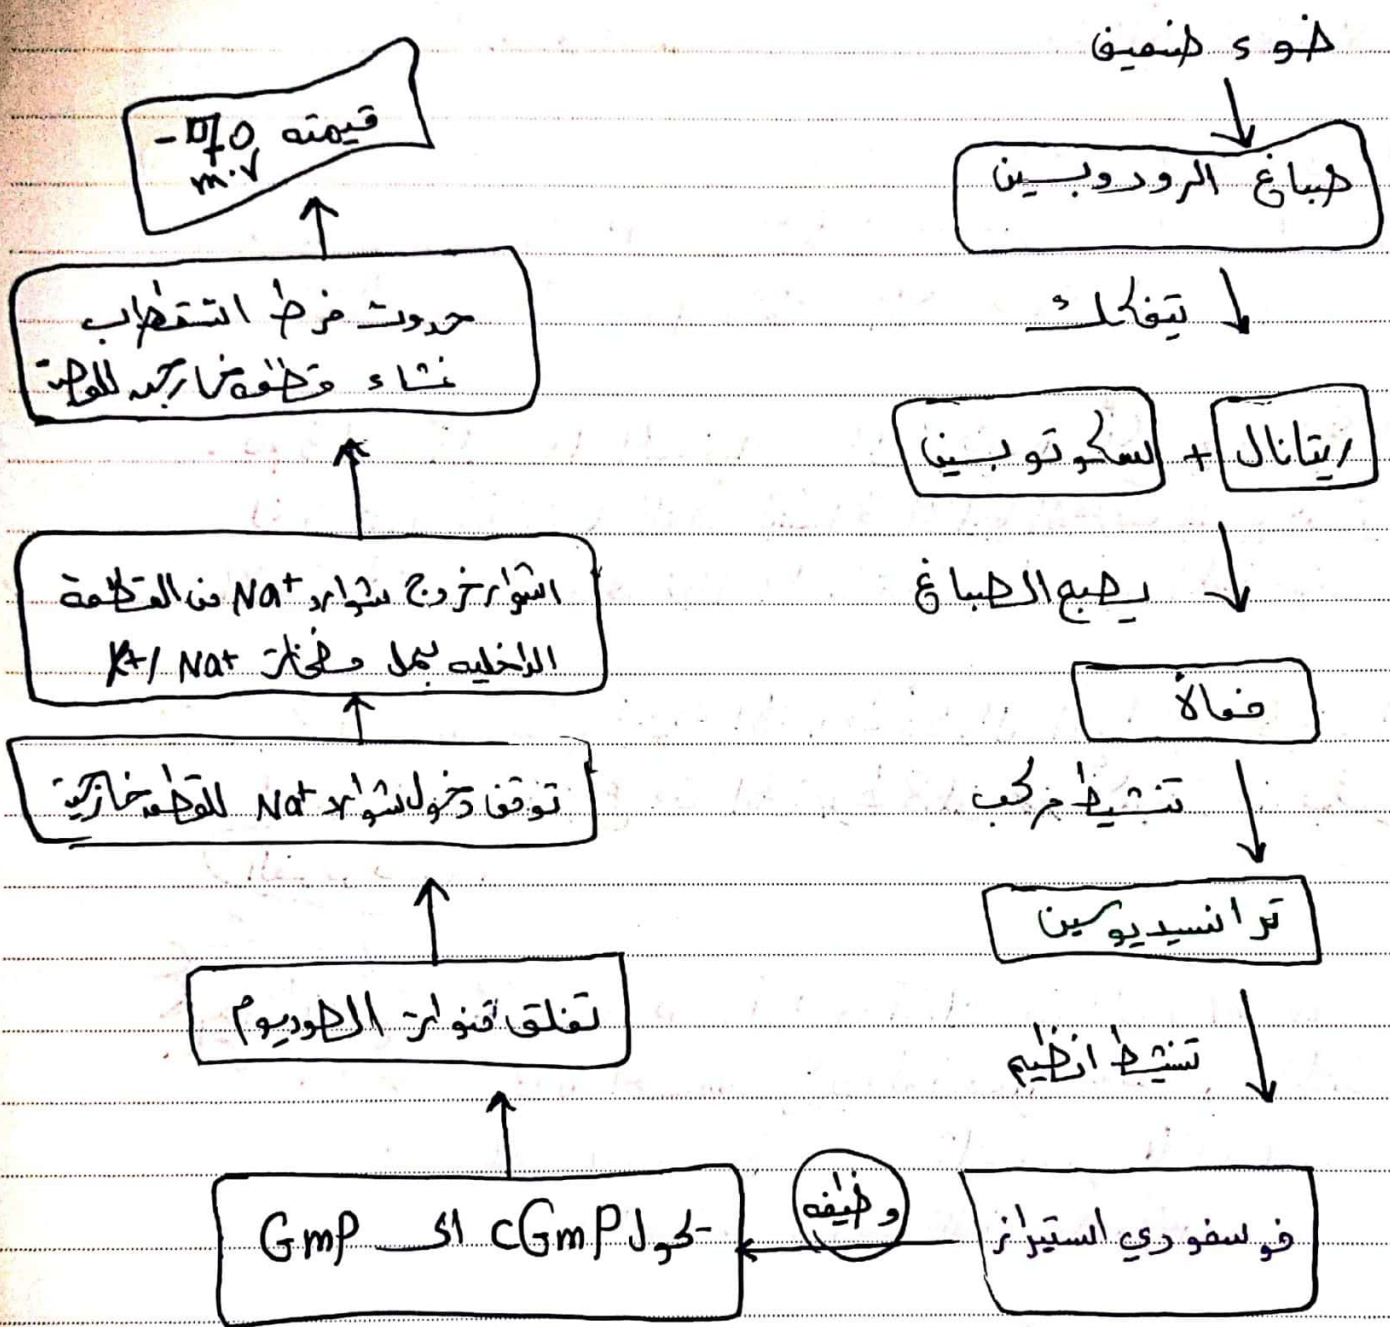 ضوء ضعيف
صباغ الرودوبسين
يتفكك
ريتانال + سكوتوبسين
يصبح الصباغ
فعالاً
تنشيط مركب
ترانسيديوسين
تنشيط انظيم
فوسفودي استيراز
وظيفه
تحول cGmP الى GmP
تغلق قنوات الصوديوم
توقف دخول شوارد Na+ للقطعه خارجية
استمرار خروج شوارد Na+ من القطعة
الداخليه بعمل مضخات Na+ /K+
حدوث فرط استقطاب
غشاء قطعه خارجيه للعصية
قيمته -70
m.v